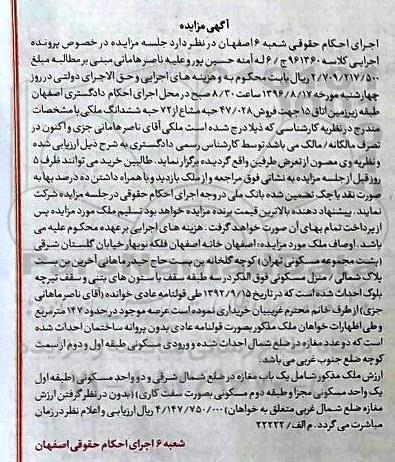 آگهی مزایده
اجرای احکام حقوقی شعبه ۶ اصفهان در نظر دارد جلسه مزایده در خصوص پرونده
اجرایی کلاسه ۹۶۱۳۶۰ ج/ ۶ له آمنه حسین پور و علیه ناصر هامانی مبنی بر مطالبه مبلغ
۲/۷۰۹/۲۱۷/۵۰۰ ریال بابت محکوم به و هزینه های اجرایی و حق الاجرای دولتی در روز
چهارشنبه مورخه ۱۳۹۶/۸/۱۷ ساعت ۸/۳۰ صبح در محل اجرای احکام دادگستری اصفهان
طبقه زیرزمین اتاق ۱۵ جهت فروش ۴۷/۰۲۸ حبه مشاع از ۷۲ حبه ششدانگ ملکی با مشخصات
مندرج در نظریه کارشناسی که ذیلا درج شده است ملکی آقای ناصر هامانی جزی و اکنون در
تصرف مالکانه / مالک می باشد توسط کارشناس رسمی دادگستری به شرح ذیل ارزیابی شده
و نظریه وی مصون از تعرض طرفین واقع گردیده برگزار نماید. طالبین خرید می توانند ظرف ۵
روز قبل از جلسه مزایده به نشانی فوق مراجعه و از ملک بازدید و با همراه داشتن ده درصد بها به
صورت نقد یا چک تضمین شده بانک ملی در وجه اجرای احکام حقوقی در جلسه مزایده شرکت
نمایند. پیشنهاد دهنده بالاترین قیمت برنده مزایده خواهد بود تسلیم ملک مورد مزایده پس
از پرداخت تمام بهای آن صورت خواهد گرفت. هزینه های اجرایی بر عهده محکوم علیه می
باشد. اوصاف ملک مورد مزایده: اصفهان خانه اصفهان فلکه نوبهار خیابان گلستان شرقی
(پشت مجموعه مسکونی تهران) کوچه گلخانه بن بست حاج حیدر ماهانی آخرین بن بست
پلاک شمالی / منزل مسکونی فوق الذکر در سه طبقه سقف با ستون های بتنی و سقف تیرچه
بلوک احداث شده است که در تاریخ ۱۳۹۲/۹/۱۵ طی قولنامه عادی خوانده (آقای ناصر ماهانی
جزی) از طرف خانم محترم غریبیان خریداری نموده است عرصه موجود در حدود ۱۴۷ مترمربع
و طی اظهارات خواهان ملک مذکور بصورت قولنامه عادی بدون پروانه ساختمان احداث شده
است که دو عدد مغازه در ضلع شمال احداث شده و ورودی مسکونی طبقه اول و دوم از سمت
کوچه ضلع جنوب غربی می باشد.
ارزش ملک مذکور شامل یک باب مغازه در ضلع شمال شرقی و دو واحد مسکونی (طبقه اول
یک واحد مسکونی مجزا و طبقه دوم مسکونی بصورت سفت کاری) (بدون در نظر گرفتن ارزش
مغازه ضلع شمال غربی متعلق به خواهان) ۴/۱۴۷/۷۵۰/۰۰۰ ریال ارزیابی و اعلام نظر در زمان
مباشرت می گردد. م الف/ ۲۲۲۲۲
شعبه ۶ اجرای احکام حقوقی اصفهان